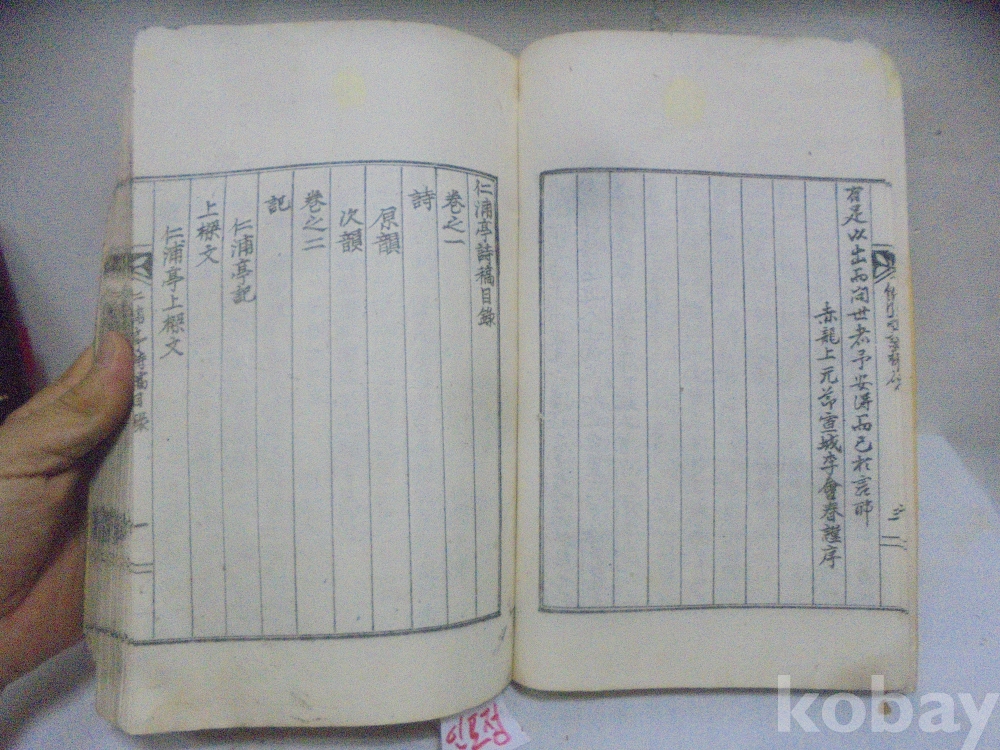 有足以出而問世者予安得而已於言耶
赤龍上元節宣城李會春謹序
三
仁浦亭詩稿目錄
卷之一
詩
原韻
次韻
卷之二
記
仁浦亭記
上樑文
仁浦亭上樑文
一
인포정
kobay